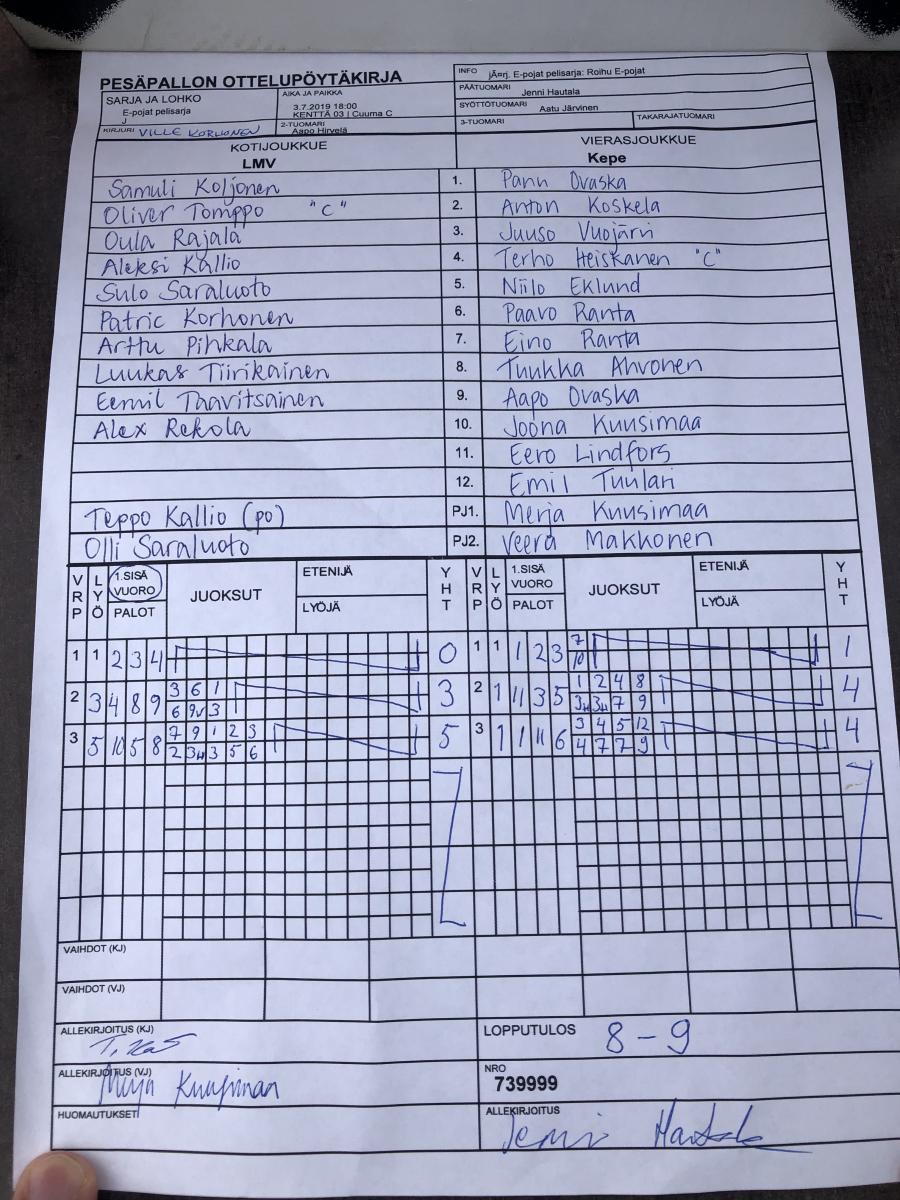 PESÄPALLON OTTELUPÖYTÄKIRJA
INFO jÃ¤rj. E-pojat pelisarja: Roihu E-pojat
SARJA JA LOHKO
E-pojat pelisarja
J
AIKA JA PAIKKA
3.7.2019 18:00
KENTTÄ 03 | Cuuma C
PÄÄTUOMARI Jenni Hautala
SYÖTTÖTUOMARI Aatu Järvinen
KIRJURI VILLE KORHONEN
2-TUOMARI
Aapo Hirvelä
3-TUOMARI
TAKARAJATUOMARI
KOTIJOUKKUE
LMV
VIERASJOUKKUE
Kepe
Samuli Koljonen 1. Panu Ovaska
Oliver Tomppo "C" 2. Anton Koskela
Oula Rajala 3. Juuso Vuojärvi
Aleksi Kallio 4. Terho Heiskanen "C"
Sulo Saraluoto 5. Niilo Eklund
Patric Korhonen 6. Paavo Ranta
Arttu Pihkala 7. Eino Ranta
Luukas Tiirikainen 8. Tuukka Ahvonen
Eemil Taavitsainen 9. Aapo Ovaska
Alex Rekola 10. Joona Kuusimaa
11. Eero Lindfors
12. Emil Tuulari
Teppo Kallio (po) PJ1. Merja Kuusimaa
Olli Saraluoto PJ2. Veera Makkonen
VRP LYÖ 1.SISÄ VUORO PALOT JUOKSUT ETENIJÄ LYÖJÄ YHT VRP LYÖ 1.SISÄ VUORO PALOT JUOKSUT ETENIJÄ LYÖJÄ YHT
1 1 2 3 4 0 1 1 1 2 3 7 1
10
2 3 4 8 9 3 6 1 3 2 1 11 3 5 1 2 4 8 4
6 9V 3 3H 3H 7 9
3 5 10 5 8 7 9 1 2 3 5 3 1 1 11 6 3 4 5 12 4
2 3H 3 5 6 4 7 7 9
VAIHDOT (KJ)
VAIHDOT (VJ)
ALLEKIRJOITUS (KJ)
LOPPUTULOS 8-9
ALLEKIRJOITUS (VJ)
NRO
739999
HUOMAUTUKSET
ALLEKIRJOITUS